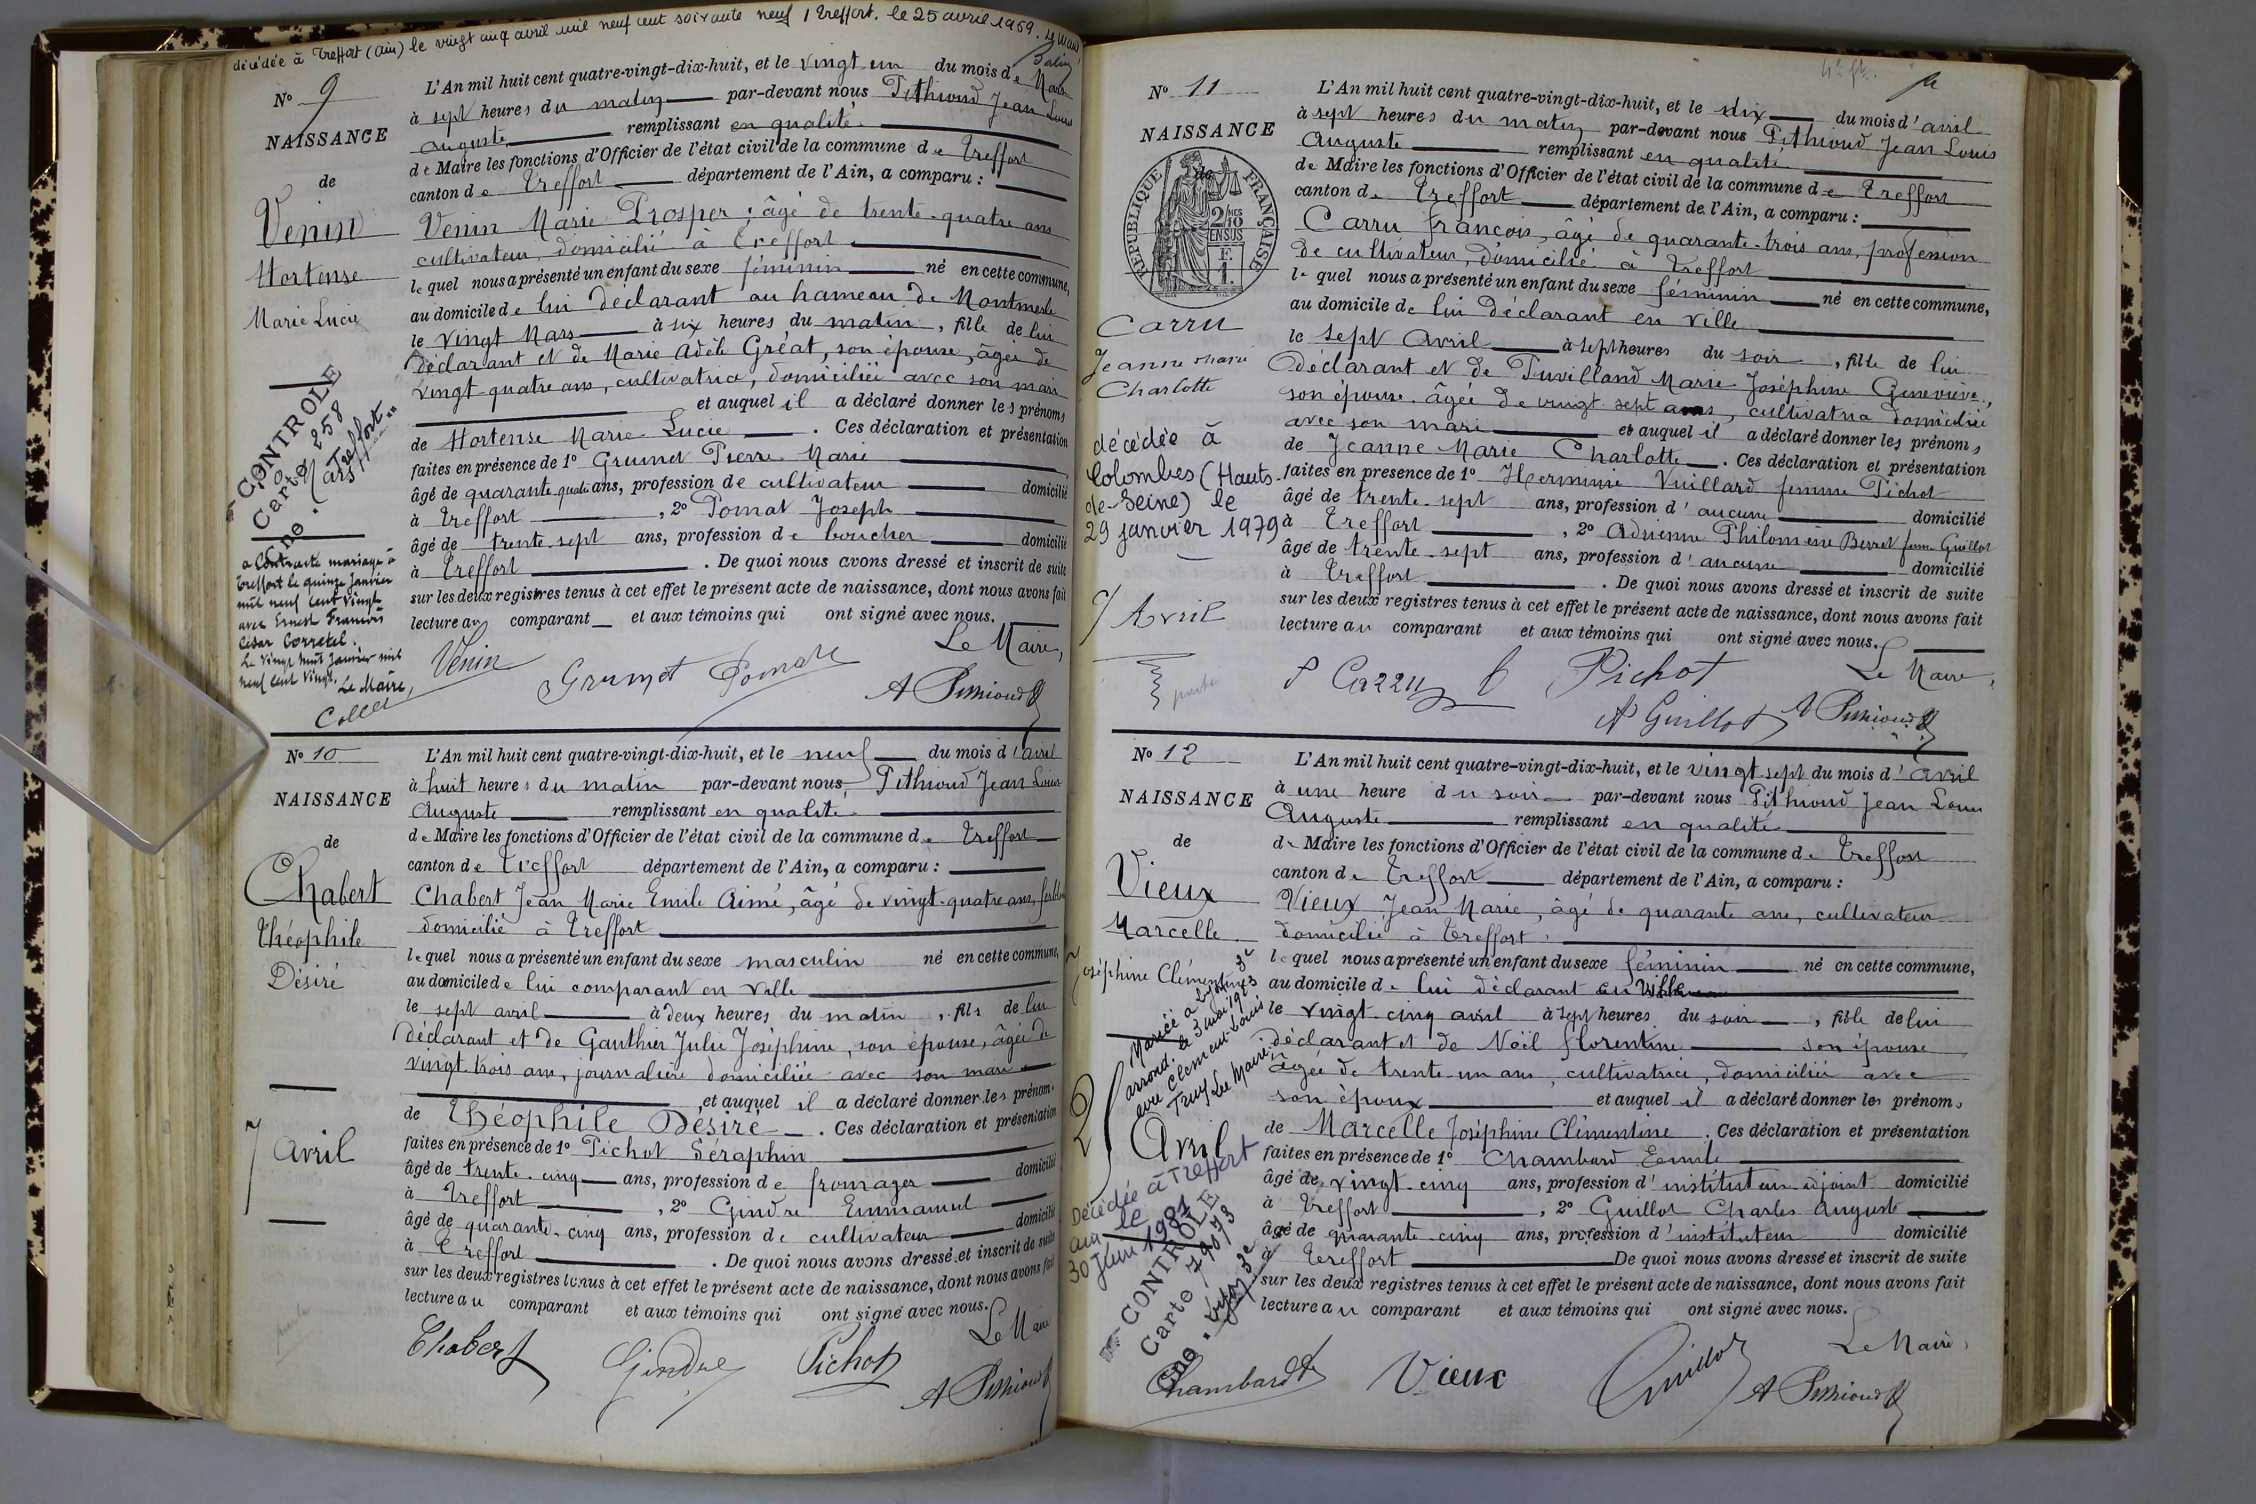 décédée à Treffort (Ain) le vingt cinq avril mil neuf cent soixante neuf / Treffort. le 25 avril 1969. Le Maire
N° 9
NAISSANCE
de
Venin
Hortense
Marie Lucie
CONTROLE
Carte 258
Mars
Treffort
a Contracté mariage à
Treffort le quinze Janvier
mil neuf cent vingt
avec Ernest François
César Corretel.
Le vingt huit Janvier mil
neuf cent vingt. Le Maire,
L'An mil huit cent quatre-vingt-dix-huit, et le vingt un du mois de Mars
à sept heures du matin par-devant nous Pithioud Jean Louis
Auguste remplissant en qualité
de Maire les fonctions d'Officier de l'état civil de la commune de Treffort
canton de Treffort département de l'Ain, a comparu :
Venin Marie Prosper, âgé de trente-quatre ans
cultivateur, domicilié à Treffort
lequel nous a présenté un enfant du sexe féminin né en cette commune,
au domicile de lui déclarant au hameau de Montmerle
le vingt Mars à six heures du matin, fille de lui
déclarant et de Marie Adèle Gréat, son épouse, âgée de
vingt-quatre ans, cultivatrice, domiciliée avec son mari
et auquel il a déclaré donner les prénoms
de Hortense Marie Lucie. Ces déclaration et présentation
faites en présence de 1° Grumet Pierre Marie
âgé de quarante-quatre ans, profession de cultivateur domicilié
à Treffort, 2° Pomat Joseph
âgé de trente-sept ans, profession de boucher domicilié
à Treffort. De quoi nous avons dressé et inscrit de suite
sur les deux registres tenus à cet effet le présent acte de naissance, dont nous avons fait
lecture au comparant et aux témoins qui ont signé avec nous.
Le Maire,
Venin Grumet Pomat
A Pithioud
N° 10
NAISSANCE
de
Chabert
Théophile
Désiré
7 Avril
L'An mil huit cent quatre-vingt-dix-huit, et le neuf du mois d'avril
à huit heures du matin par-devant nous Pithioud Jean Louis
Auguste remplissant en qualité
de Maire les fonctions d'Officier de l'état civil de la commune de Treffort
canton de Treffort département de l'Ain, a comparu :
Chabert Jean Marie Emile Aimé, âgé de vingt-quatre ans,
domicilié à Treffort
lequel nous a présenté un enfant du sexe masculin né en cette commune,
au domicile de lui comparant en ville
le sept avril à deux heures du matin, fils de lui
déclarant et de Gauthier Julie Joséphine, son épouse, âgée de
vingt-trois ans, journalière domiciliée avec son mari
et auquel il a déclaré donner les prénoms
de Théophile Désiré. Ces déclaration et présentation
faites en présence de 1° Pichot Séraphin
âgé de trente-cinq ans, profession de fromager domicilié
à Treffort, 2° Gindre Emmanuel
âgé de quarante-cinq ans, profession de cultivateur domicilié
à Treffort. De quoi nous avons dressé et inscrit de suite
sur les deux registres tenus à cet effet le présent acte de naissance, dont nous avons fait
lecture au comparant et aux témoins qui ont signé avec nous.
Le Maire
Chabert Gindre Pichot
A Pithioud
N° 11
NAISSANCE
de
RÉPUBLIQUE FRANÇAISE
2/10 EN SUS
Carru
Jeanne Marie
Charlotte
décédée à
Colombes (Hauts-
de-Seine) le
29 janvier 1979
7 Avril
L'An mil huit cent quatre-vingt-dix-huit, et le dix du mois d'avril
à sept heures du matin par-devant nous Pithioud Jean Louis
Auguste remplissant en qualité
de Maire les fonctions d'Officier de l'état civil de la commune de Treffort
canton de Treffort département de l'Ain, a comparu :
Carru François, âgé de quarante-trois ans, profession
de cultivateur, domicilié à Treffort
lequel nous a présenté un enfant du sexe féminin né en cette commune,
au domicile de lui déclarant en ville
le sept Avril à sept heures du soir, fille de lui
déclarant et de Puvilland Marie Joséphine Geneviève,
son épouse âgée de vingt-sept ans, cultivatrice domiciliée
avec son mari et auquel il a déclaré donner les prénoms
de Jeanne Marie Charlotte. Ces déclaration et présentation
faites en présence de 1° Herminie Vuillard femme Pichot
âgé de trente-sept ans, profession d'aucune domicilié
à Treffort, 2° Adrienne Philomène Berret femme Guillot
âgé de trente-sept ans, profession d'aucune domicilié
à Treffort. De quoi nous avons dressé et inscrit de suite
sur les deux registres tenus à cet effet le présent acte de naissance, dont nous avons fait
lecture au comparant et aux témoins qui ont signé avec nous.
Le Maire,
Carru Pichot
Guillot A Pithioud
N° 12
NAISSANCE
de
Vieux
Marcelle
Joséphine Clémentine
Mariée à Lyon 3e
arrond. le 3 mai 1923
avec Clément Louis
Truy. Le Maire
25 Avril
Décédée à Treffort
Ain le
30 Juin 1981
CONTROLE
Carte 79673
Lyon 3e
L'An mil huit cent quatre-vingt-dix-huit, et le vingt sept du mois d'avril
à une heure du soir par-devant nous Pithioud Jean Louis
Auguste remplissant en qualité
de Maire les fonctions d'Officier de l'état civil de la commune de Treffort
canton de Treffort département de l'Ain, a comparu :
Vieux Jean Marie, âgé de quarante ans, cultivateur
domicilié à Treffort
lequel nous a présenté un enfant du sexe féminin né en cette commune,
au domicile de lui déclarant en ville
le vingt-cinq avril à sept heures du soir, fille de lui
déclarant et de Noël Florentine son épouse
âgée de trente-un ans, cultivatrice, domiciliée avec
son époux et auquel il a déclaré donner les prénoms
de Marcelle Joséphine Clémentine. Ces déclaration et présentation
faites en présence de 1° Chambard Emile
âgé de vingt-cinq ans, profession d'instituteur adjoint domicilié
à Treffort, 2° Guillot Charles Auguste
âgé de quarante-cinq ans, profession d'instituteur domicilié
à Treffort De quoi nous avons dressé et inscrit de suite
sur les deux registres tenus à cet effet le présent acte de naissance, dont nous avons fait
lecture au comparant et aux témoins qui ont signé avec nous.
Le Maire,
Chambard Vieux Guillot A Pithioud